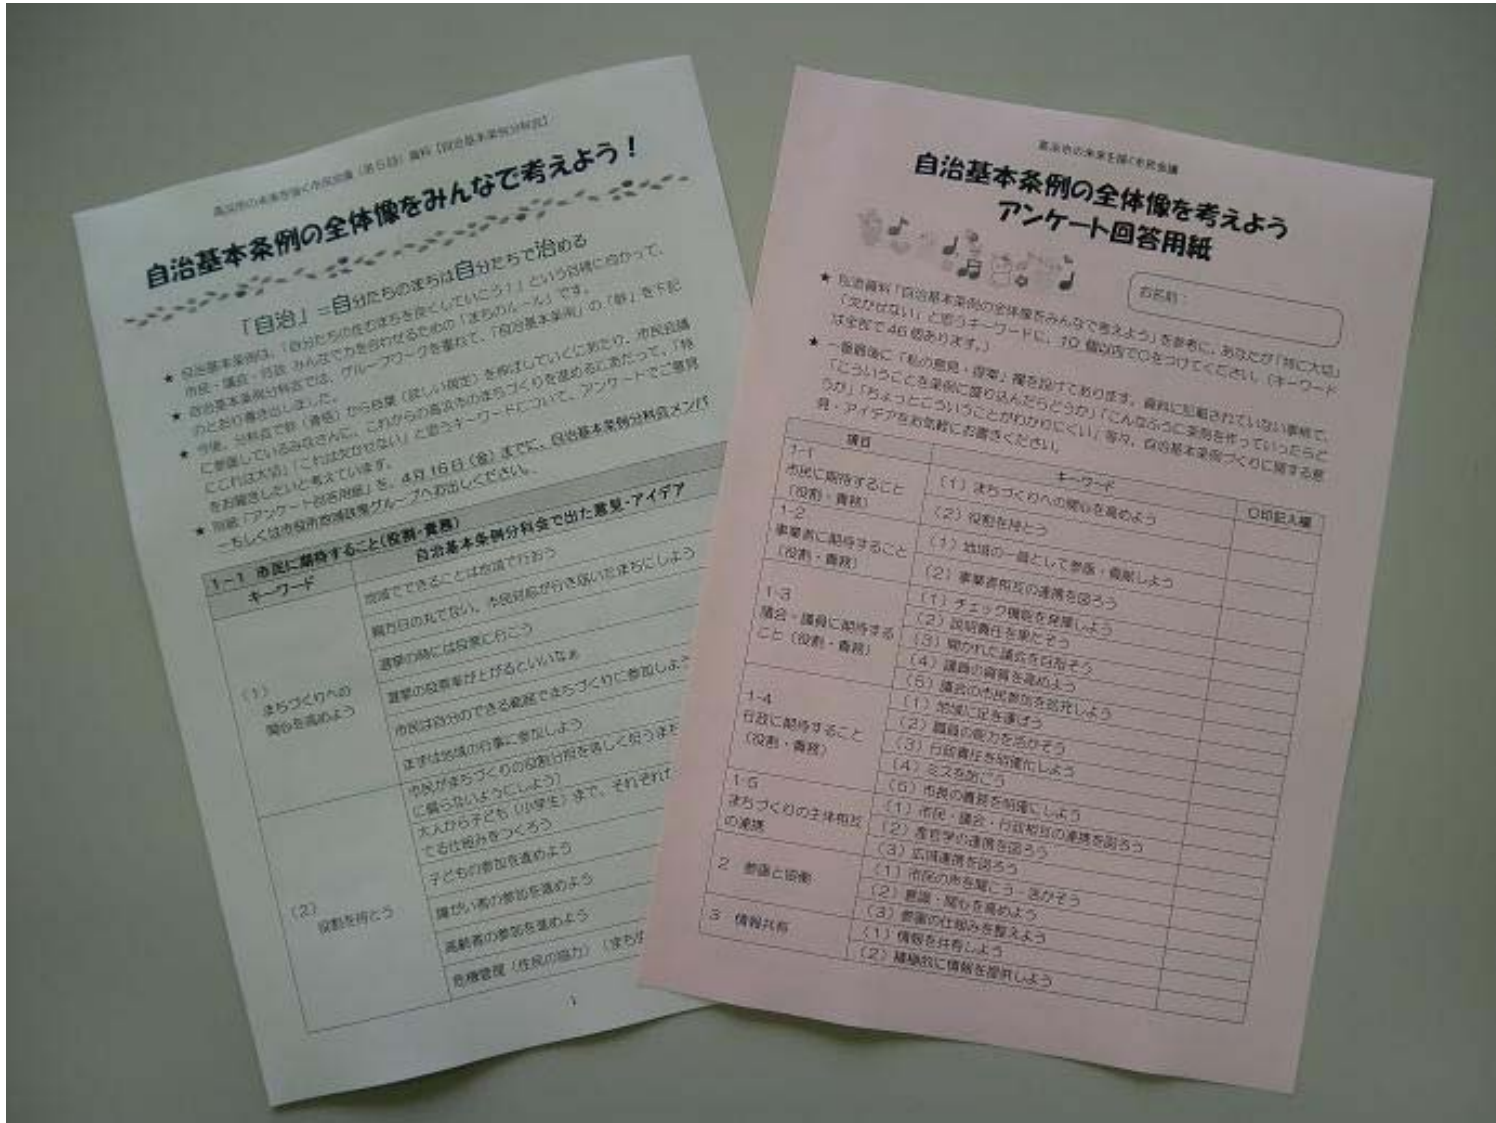 高浜市の未来を描く市民会議（第5回）資料【自治基本条例分科会】
自治基本条例の全体像をみんなで考えよう！
「自治」＝自分たちのまちは自分たちで治める
★ 自治基本条例は、「自分たちの住むまちを良くしていこう！」という目標に向かって、
市民・議会・行政 みんなで力を合わせるための「まちのルール」です。
★ 自治基本条例分科会では、グループワークを重ねて、「自治基本条例」の「幹」を下記
のとおり書き出しました。
★ 今後、分科会で幹（骨格）から枝葉（詳しい規定）を伸ばしていくにあたり、市民会議
に参画しているみなさんに、これからの高浜市のまちづくりを進めるにあたって、「特
にこれは大切」「これは欠かせない」と思うキーワードについて、アンケートでご意見
をお聞きしたいと考えています。
★ 別紙「アンケート回答用紙」を、4月16日（金）までに、自治基本条例分科会メンバ
ーもしくは市役所地域政策グループへお出しください。
1－1 市民に期待すること（役割・責務）
キーワード
自治基本条例分科会で出た意見・アイデア
（1）
まちづくりへの
関心を高めよう
地域でできることは地域で行おう
親方日の丸でない、市民対応が行き届いたまちにしよう
選挙の時には投票に行こう
選挙の投票率が上がるといいなぁ
市民は自分のできる範囲でまちづくりに参加しよう
まずは地域の行事に参加しよう
市民がまちづくりの役割分担を等しく担うまち
に偏らないようにしよう）
（2）
役割を持とう
大人から子ども（小学生）まで、それぞれ
てる仕組みをつくろう
子どもの参加を進めよう
障がい者の参加を進めよう
高齢者の参加を進めよう
危機管理（住民の協力）（まち
1
高浜市の未来を描く市民会議
自治基本条例の全体像を考えよう
アンケート回答用紙
お名前：
★ 別添資料「自治基本条例の全体像をみんなで考えよう」を参考に、あなたが「特に大切」
「欠かせない」と思うキーワードに、10個以内で○をつけてください。（キーワード
は全部で46個あります。）
★ 一番最後に「私の意見・提案」欄を設けてあります。資料に記載されていない事柄で、
「こういうことを条例に盛り込んだらどうか」「こんなふうに条例を作っていったらど
うか」「ちょっとこういうことがわかりにくい」等々、自治基本条例づくりに関する意
見・アイデアをお気軽にお書きください。
項目
キーワード
○印記入欄
1-1
市民に期待すること
（役割・責務）
（1）まちづくりへの関心を高めよう
（2）役割を持とう
1-2
事業者に期待すること
（役割・責務）
（1）地域の一員として参画・貢献しよう
（2）事業者相互の連携を図ろう
1-3
議会・議員に期待する
こと（役割・責務）
（1）チェック機能を発揮しよう
（2）説明責任を果たそう
（3）開かれた議会を目指そう
（4）議員の資質を高めよう
（5）議会の市民参加を拡充しよう
1-4
行政に期待すること
（役割・責務）
（1）地域に足を運ぼう
（2）職員の能力を活かそう
（3）行政責任を明確化しよう
（4）ミスを防ごう
（5）市長の責務を明確にしよう
1-5
まちづくりの主体相互
の連携
（1）市民・議会・行政相互の連携を図ろう
（2）産官学の連携を図ろう
（3）広域連携を図ろう
2 参画と協働
（1）市民の声を聞こう・活かそう
（2）意識・関心を高めよう
（3）参画の仕組みを整えよう
3 情報共有
（1）情報を共有しよう
（2）積極的に情報を提供しよう